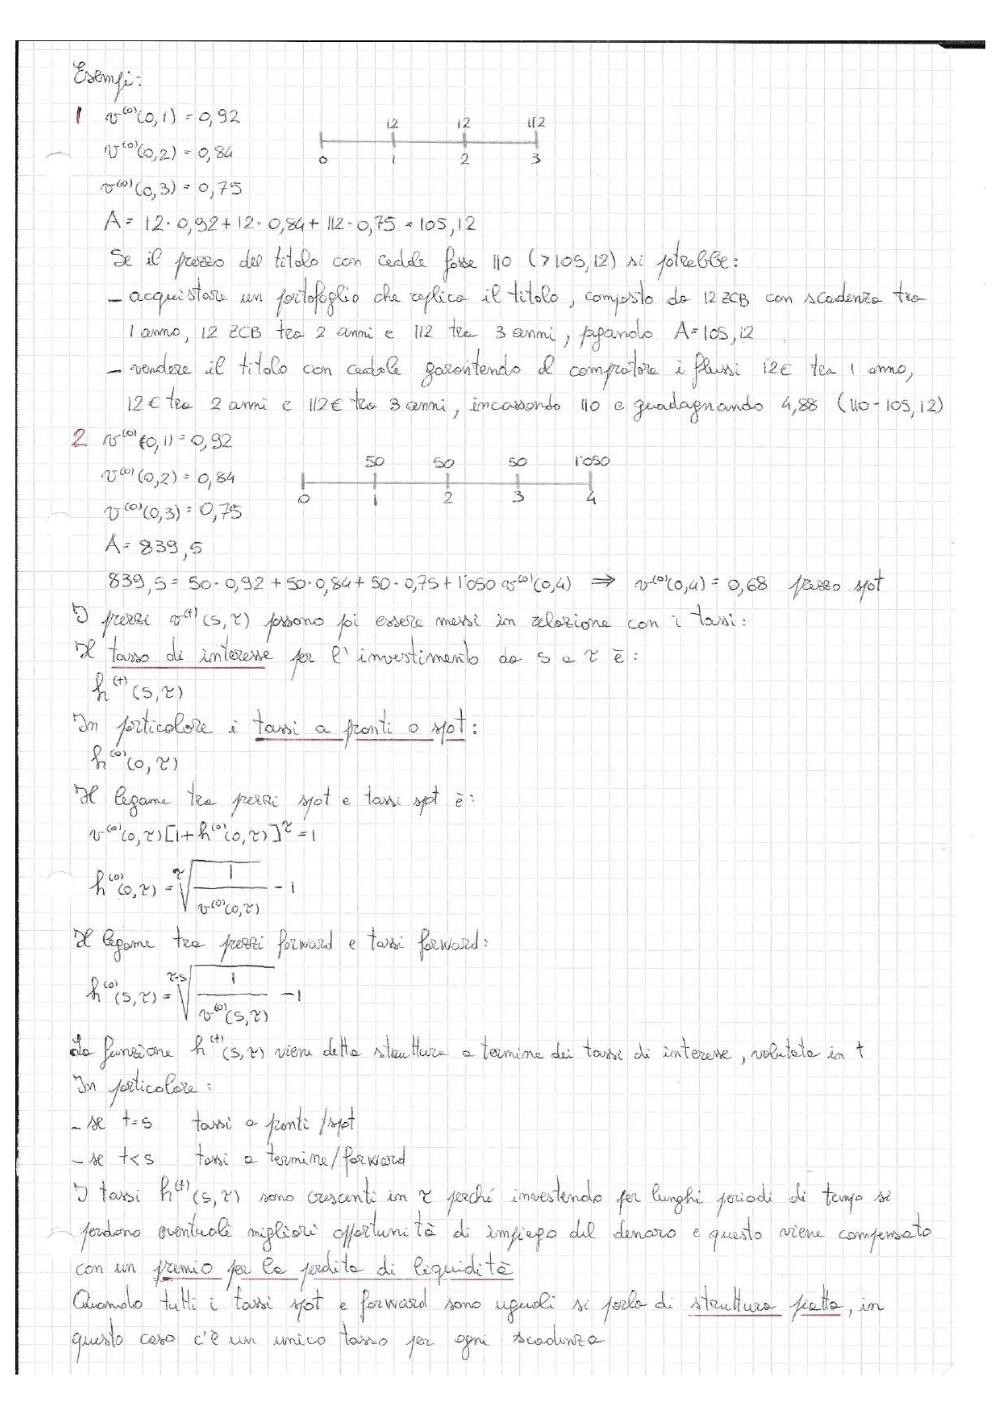 Esempi:
1 v⁽⁰⁾(0,1) = 0,92
12 12 112
0 1 2 3
v⁽⁰⁾(0,2) = 0,84
v⁽⁰⁾(0,3) = 0,75
A = 12·0,92 + 12·0,84 + 112·0,75 = 105,12
Se il prezzo del titolo con cedole fosse 110 (>105,12) si potrebbe:
- acquistare un portofoglio che replica il titolo, composto da 12 ZCB con scadenza tra
1 anno, 12 ZCB tra 2 anni e 112 tra 3 anni, pagando A=105,12
- vendere il titolo con cedole garantendo al compratore i flussi 12€ tra 1 anno,
12€ tra 2 anni e 112€ tra 3 anni, incassando 110 e guadagnando 4,88 (110-105,12)
2 v⁽⁰⁾(0,1) = 0,92
50 50 50 1'050
0 1 2 3 4
v⁽⁰⁾(0,2) = 0,84
v⁽⁰⁾(0,3) = 0,75
A = 839,5
839,5 = 50·0,92 + 50·0,84 + 50·0,75 + 1'050 v⁽⁰⁾(0,4) ⇒ v⁽⁰⁾(0,4) = 0,68 prezzo spot
I prezzi v⁽ᵗ⁾(s,τ) possono poi essere messi in relazione con i tassi:
Il tasso di interesse per l'investimento da s a τ è:
h⁽ᵗ⁾(s,τ)
In particolare i tassi a pronti o spot:
h⁽⁰⁾(0,τ)
Il legame tra prezzi spot e tassi spot è:
v⁽⁰⁾(0,τ)[1+h⁽⁰⁾(0,τ)]^τ = 1
h⁽⁰⁾(0,τ) = ^τ√(1/v⁽⁰⁾(0,τ)) - 1
Il legame tra prezzi forward e tassi forward:
h⁽⁰⁾(s,τ) = ^(τ-s)√(1/v⁽⁰⁾(s,τ)) - 1
La funzione h⁽ᵗ⁾(s,τ) viene detta struttura a termine dei tassi di interesse, valutata in t
In particolare:
- se t=s tassi a pronti/spot
- se t<s tassi a termine/forward
I tassi h⁽ᵗ⁾(s,τ) sono crescenti in τ perché investendo per lunghi periodi di tempo si
perdono eventuali migliori opportunità di impiego del denaro e questo viene compensato
con un premio per la perdita di liquidità
Quando tutti i tassi spot e forward sono uguali si parla di struttura piatta, in
questo caso c'è un unico tasso per ogni scadenza